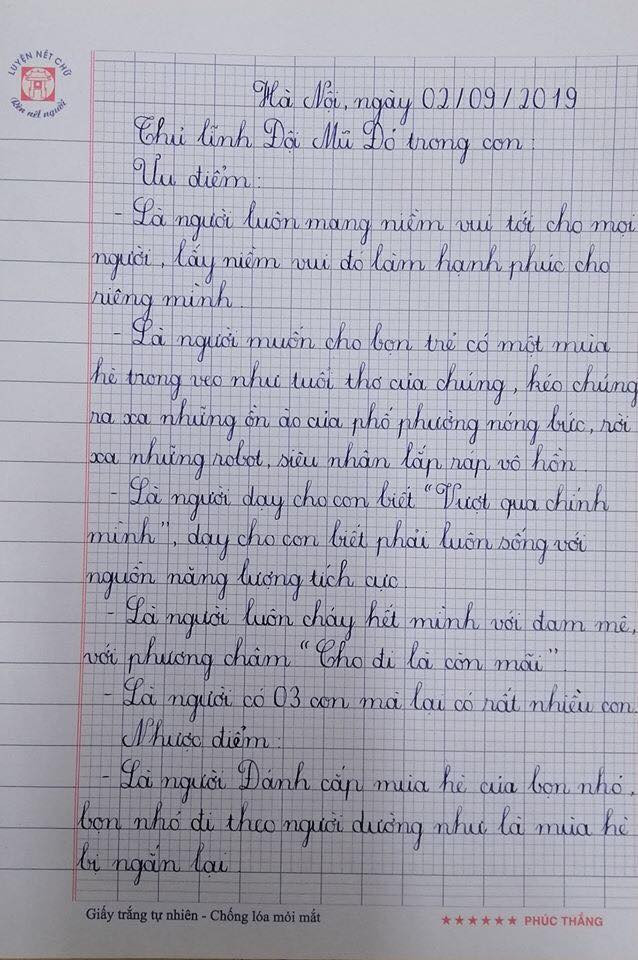 LUYỆN NÉT CHỮ
Rèn nết người
Hà Nội, ngày 02/09/2019
Thủ lĩnh Đội Mũ Đỏ trong con:
Ưu điểm:
- Là người luôn mang niềm vui tới cho mọi
người, lấy niềm vui đó làm hạnh phúc cho
riêng mình.
- Là người muốn cho bọn trẻ có một mùa
hè trong veo như tuổi thơ của chúng, kéo chúng
ra xa những ồn ào của phố phường nóng bức, rời
xa những robot, siêu nhân lắp ráp vô hồn.
- Là người dạy cho con biết "Vượt qua chính
mình", dạy cho con biết phải luôn sống với
nguồn năng lượng tích cực.
- Là người luôn cháy hết mình với đam mê,
với phương châm "Cho đi là còn mãi".
- Là người có 03 con mà lại có rất nhiều con.
Nhược điểm:
- Là người Đánh cắp mùa hè của bọn nhỏ,
bọn nhỏ đi theo người dường như là mùa hè
bị ngắn lại.
Giấy trắng tự nhiên - Chống lóa mỏi mắt
★★★★★★ PHÚC THẮNG